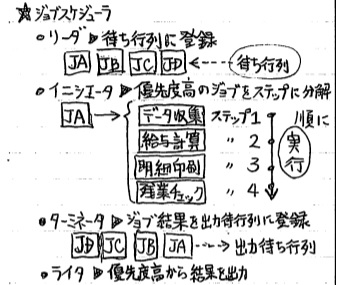 ☆ジョブスケジューラ
○リーダ ▷ 待ち行列に登録
JA JB JC JD ← 待ち行列
○イニシエータ ▷ 優先度高のジョブをステップに分解
JA → データ収集 ステップ1 順に
給与計算 〃 2 実
明細印刷 〃 3 行
残業チェック 〃 4
○ターミネータ ▷ ジョブ結果を出力待行列に登録
JD JC JB JA → 出力待ち行列
○ライタ ▷ 優先度高から結果を出力